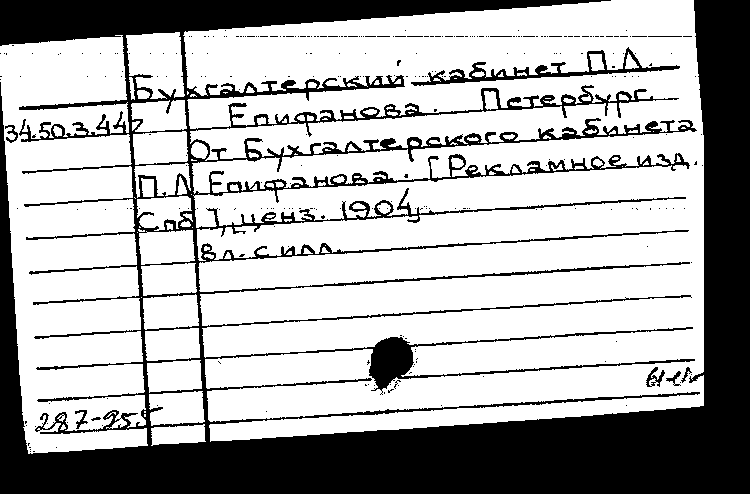 Бухгалтерский кабинет П.Л.
Епифанова. Петербург.
34.50.3.442
От Бухгалтерского кабинета
П.Л. Епифанова. [Рекламное изд.
Спб.], ценз. 1904.
8 л. с илл.
287-955